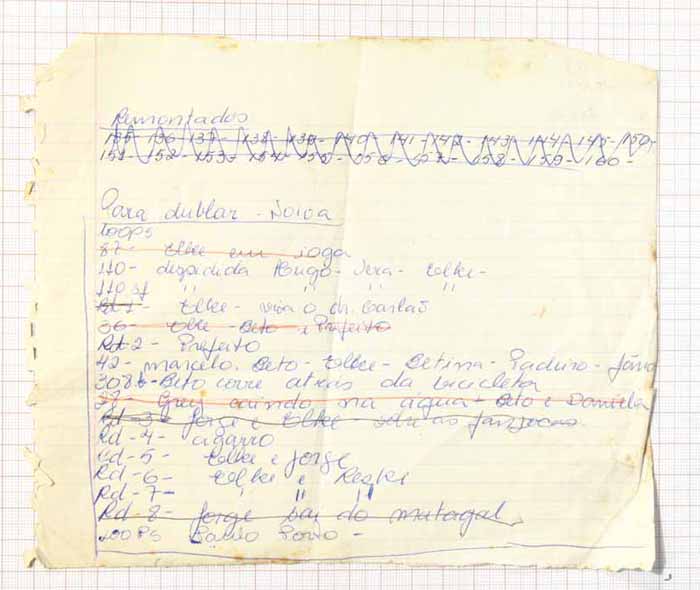 Remontados
135- 136- 137- 138- 139- 140- 141- 142- 143- 144- 145- 150-
151- 152- 153- 154- 155- 156- 157- 158- 159- 160-
Para dublar - Noiva
LOOPS
87- Elke em ioga
110- despedida Hugo- Vera- Elke-
110 " " "
Rd 1- Elke- vira o dr. Carlão
36- Elke - Beto e Prefeito
Rd-2- Prefeito
42- marcelo. Beto- Elke- Betina- Padeiro-
308 Beto corre atrás da bicicleta
caindo na agua - Beto e Daniela
Rd-3- Jorge e Elke-
Rd-4- cigarro
Rd-5- Elke e Jorge
Rd-6- Elke e
Rd-7- " " "
Rd-8- Jorge sai do matagal
LOOPS Porto -